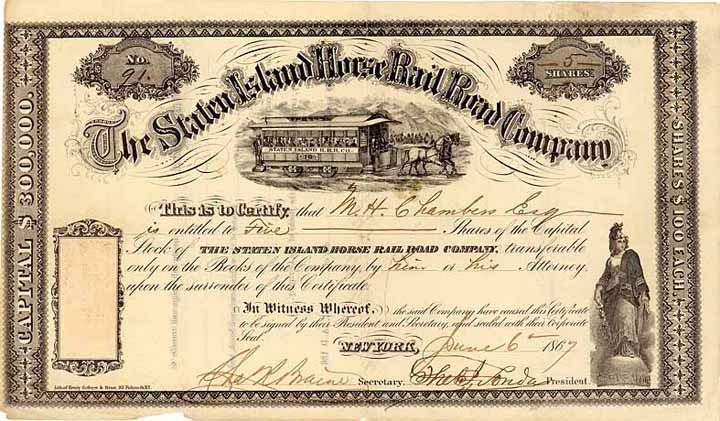 No.
91.
5
SHARES.
The Staten Island Horse Rail Road Company
STATEN ISLAND H.R.R. CO.
10
CAPITAL $300,000.
SHARES $100 EACH.
This is to Certify, that M. H. Chambers Esq
is entitled to Five Shares of the Capital
Stock of THE STATEN ISLAND HORSE RAIL ROAD COMPANY, transferable
only on the Books of the Company, by him or his Attorney.
upon the surrender of this Certificate.
In Witness Whereof, the said Company have caused this Certificate
to be signed by their President and Secretary, and sealed with their Corporate
Seal.
NEW YORK, June 6th 1867
Secretary. President.